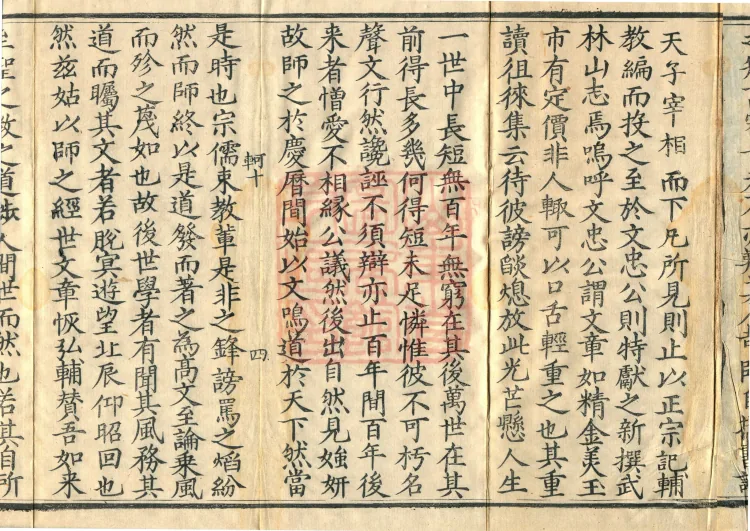 天子宰相而下凡所見則止以正宗記輔
教編而投之至於文忠公則特獻之新撰武
林山志焉嗚呼文忠公謂文章如精金美玉
市有定價非人輙可以口舌輕重之也其重
讀徂徠集云待彼謗燄熄放此光芒懸人生
一世中長短無百年無窮在其後萬世在其
前得長多幾何得短未足憐惟彼不可朽名
聲文行然讒誣不須辯亦止百年間百年後
来者憎愛不相縁公議然後出自然見媸妍
故師之於慶曆間始以文鳴道於天下然當
軻十
四
是時也宗儒束教軰是非之鋒謗罵之焰紛
然而師終以是道發而著之為髙文至論乘風
而殄之蔑如也故後世學者有聞其風務其
道而矚其文者若脫冥遊望北辰仰昭回也
然玆姑以師之經世文章恢弘輔賛吾如来
至聖之教之道涉人間世而然也若其自所